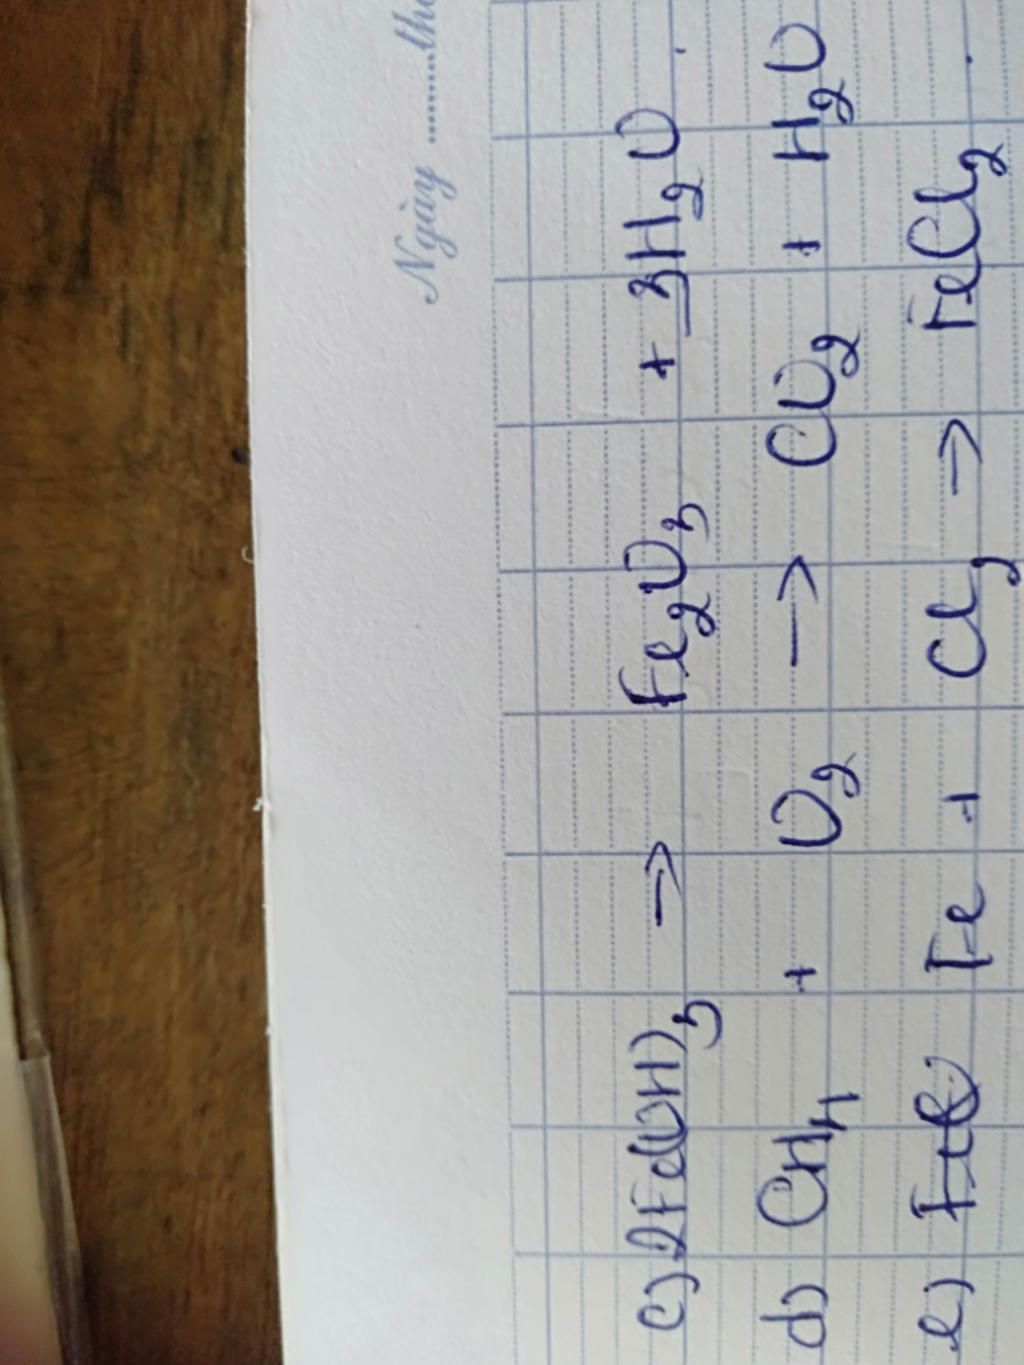 Ngày ........thá
c) 2Fe(OH)₃ → Fe₂O₃ + 3H₂O
d) CH₄ + O₂ → CO₂ + H₂O
e) Fe + Cl₂ → FeCl₂